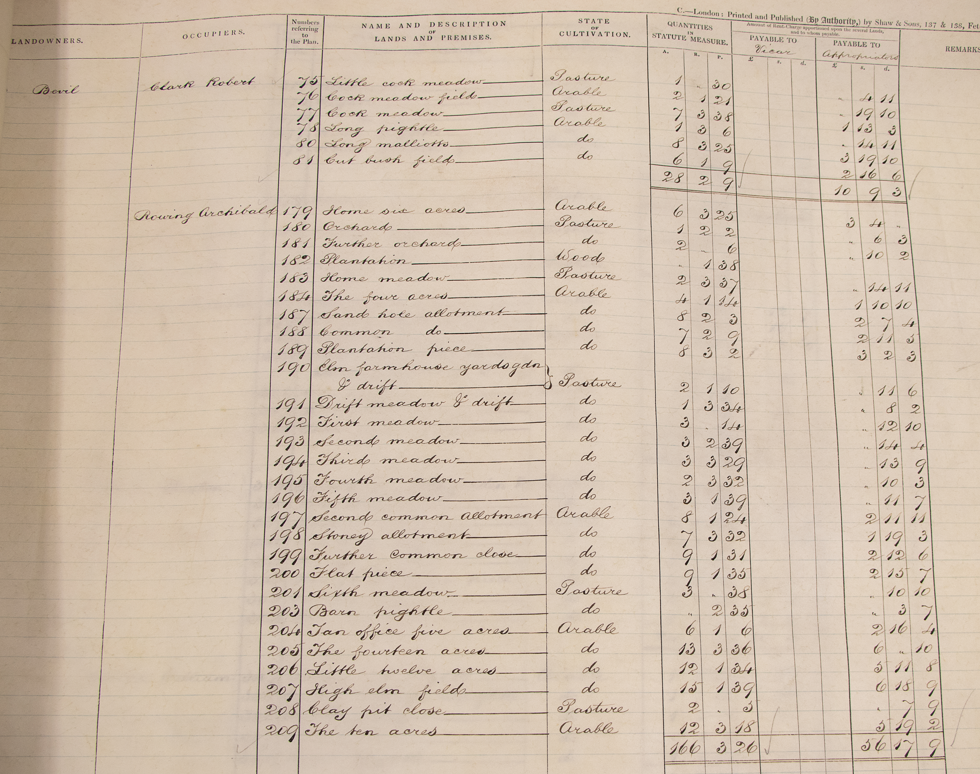 C.—London: Printed and Published (By Authority,) by Shaw & Sons, 137 & 138, Fet
LANDOWNERS. OCCUPIERS. Numbers referring to the Plan. NAME AND DESCRIPTION OF LANDS AND PREMISES. STATE OF CULTIVATION. QUANTITIES IN STATUTE MEASURE. Amount of Rent-Charge apportioned upon the several Lands, and to whom payable. PAYABLE TO Vicar PAYABLE TO Appropriators REMARKS
A. R. P. £ s. d. £ s. d.
Bevil Clark Robert 75 Little cock meadow Pasture 1 .. 30 .. 4 11
76 Cock meadow field Arable 2 1 21 .. 19 10
77 Cock meadow Pasture 7 3 38 1 13 3
78 Long pightle Arable 1 3 6 .. 14 11
80 Long malliotts do 8 3 25 3 19 10
81 Cut bush field do 6 1 9 2 16 6
28 2 9 10 9 3
Rowing Archibald 179 Home six acres Arable 6 3 25 3 4 ..
180 Orchard Pasture 1 2 2 .. 6 3
181 Further orchard do 2 .. 6 .. 10 2
182 Plantation Wood .. 1 38
183 Home meadow Pasture 2 3 37 .. 14 11
184 The four acres Arable 4 1 14 1 10 10
187 Sand hole allotment do 8 2 3 2 7 4
188 Common do do 7 2 9 2 11 3
189 Plantation piece do 8 3 2 3 2 3
190 Elm farmhouse yards gdn
& drift Pasture 2 1 10 .. 11 6
191 Drift meadow & drift do 1 3 34 .. 8 2
192 First meadow do 3 .. 14 .. 12 10
193 Second meadow do 3 2 39 .. 14 4
194 Third meadow do 3 3 29 .. 13 9
195 Fourth meadow do 2 3 32 .. 10 3
196 Fifth meadow do 3 1 39 .. 11 7
197 Second common allotment Arable 8 1 24 2 11 11
198 Stoney allotment do 7 3 32 1 19 3
199 Further common close do 9 1 31 2 12 6
200 Flat piece do 9 1 35 2 15 7
201 Sixth meadow Pasture 3 .. 38 .. 10 10
203 Barn pightle do .. 2 35 .. 3 7
204 Tan office five acres Arable 6 1 6 2 16 4
205 The fourteen acres do 13 3 36 6 .. 10
206 Little twelve acres do 12 1 34 5 11 8
207 High elm field do 15 1 39 6 18 9
208 Clay pit close Pasture 2 .. 3 .. 7 9
209 The ten acres Arable 12 3 18 5 19 2
166 3 26 56 17 9